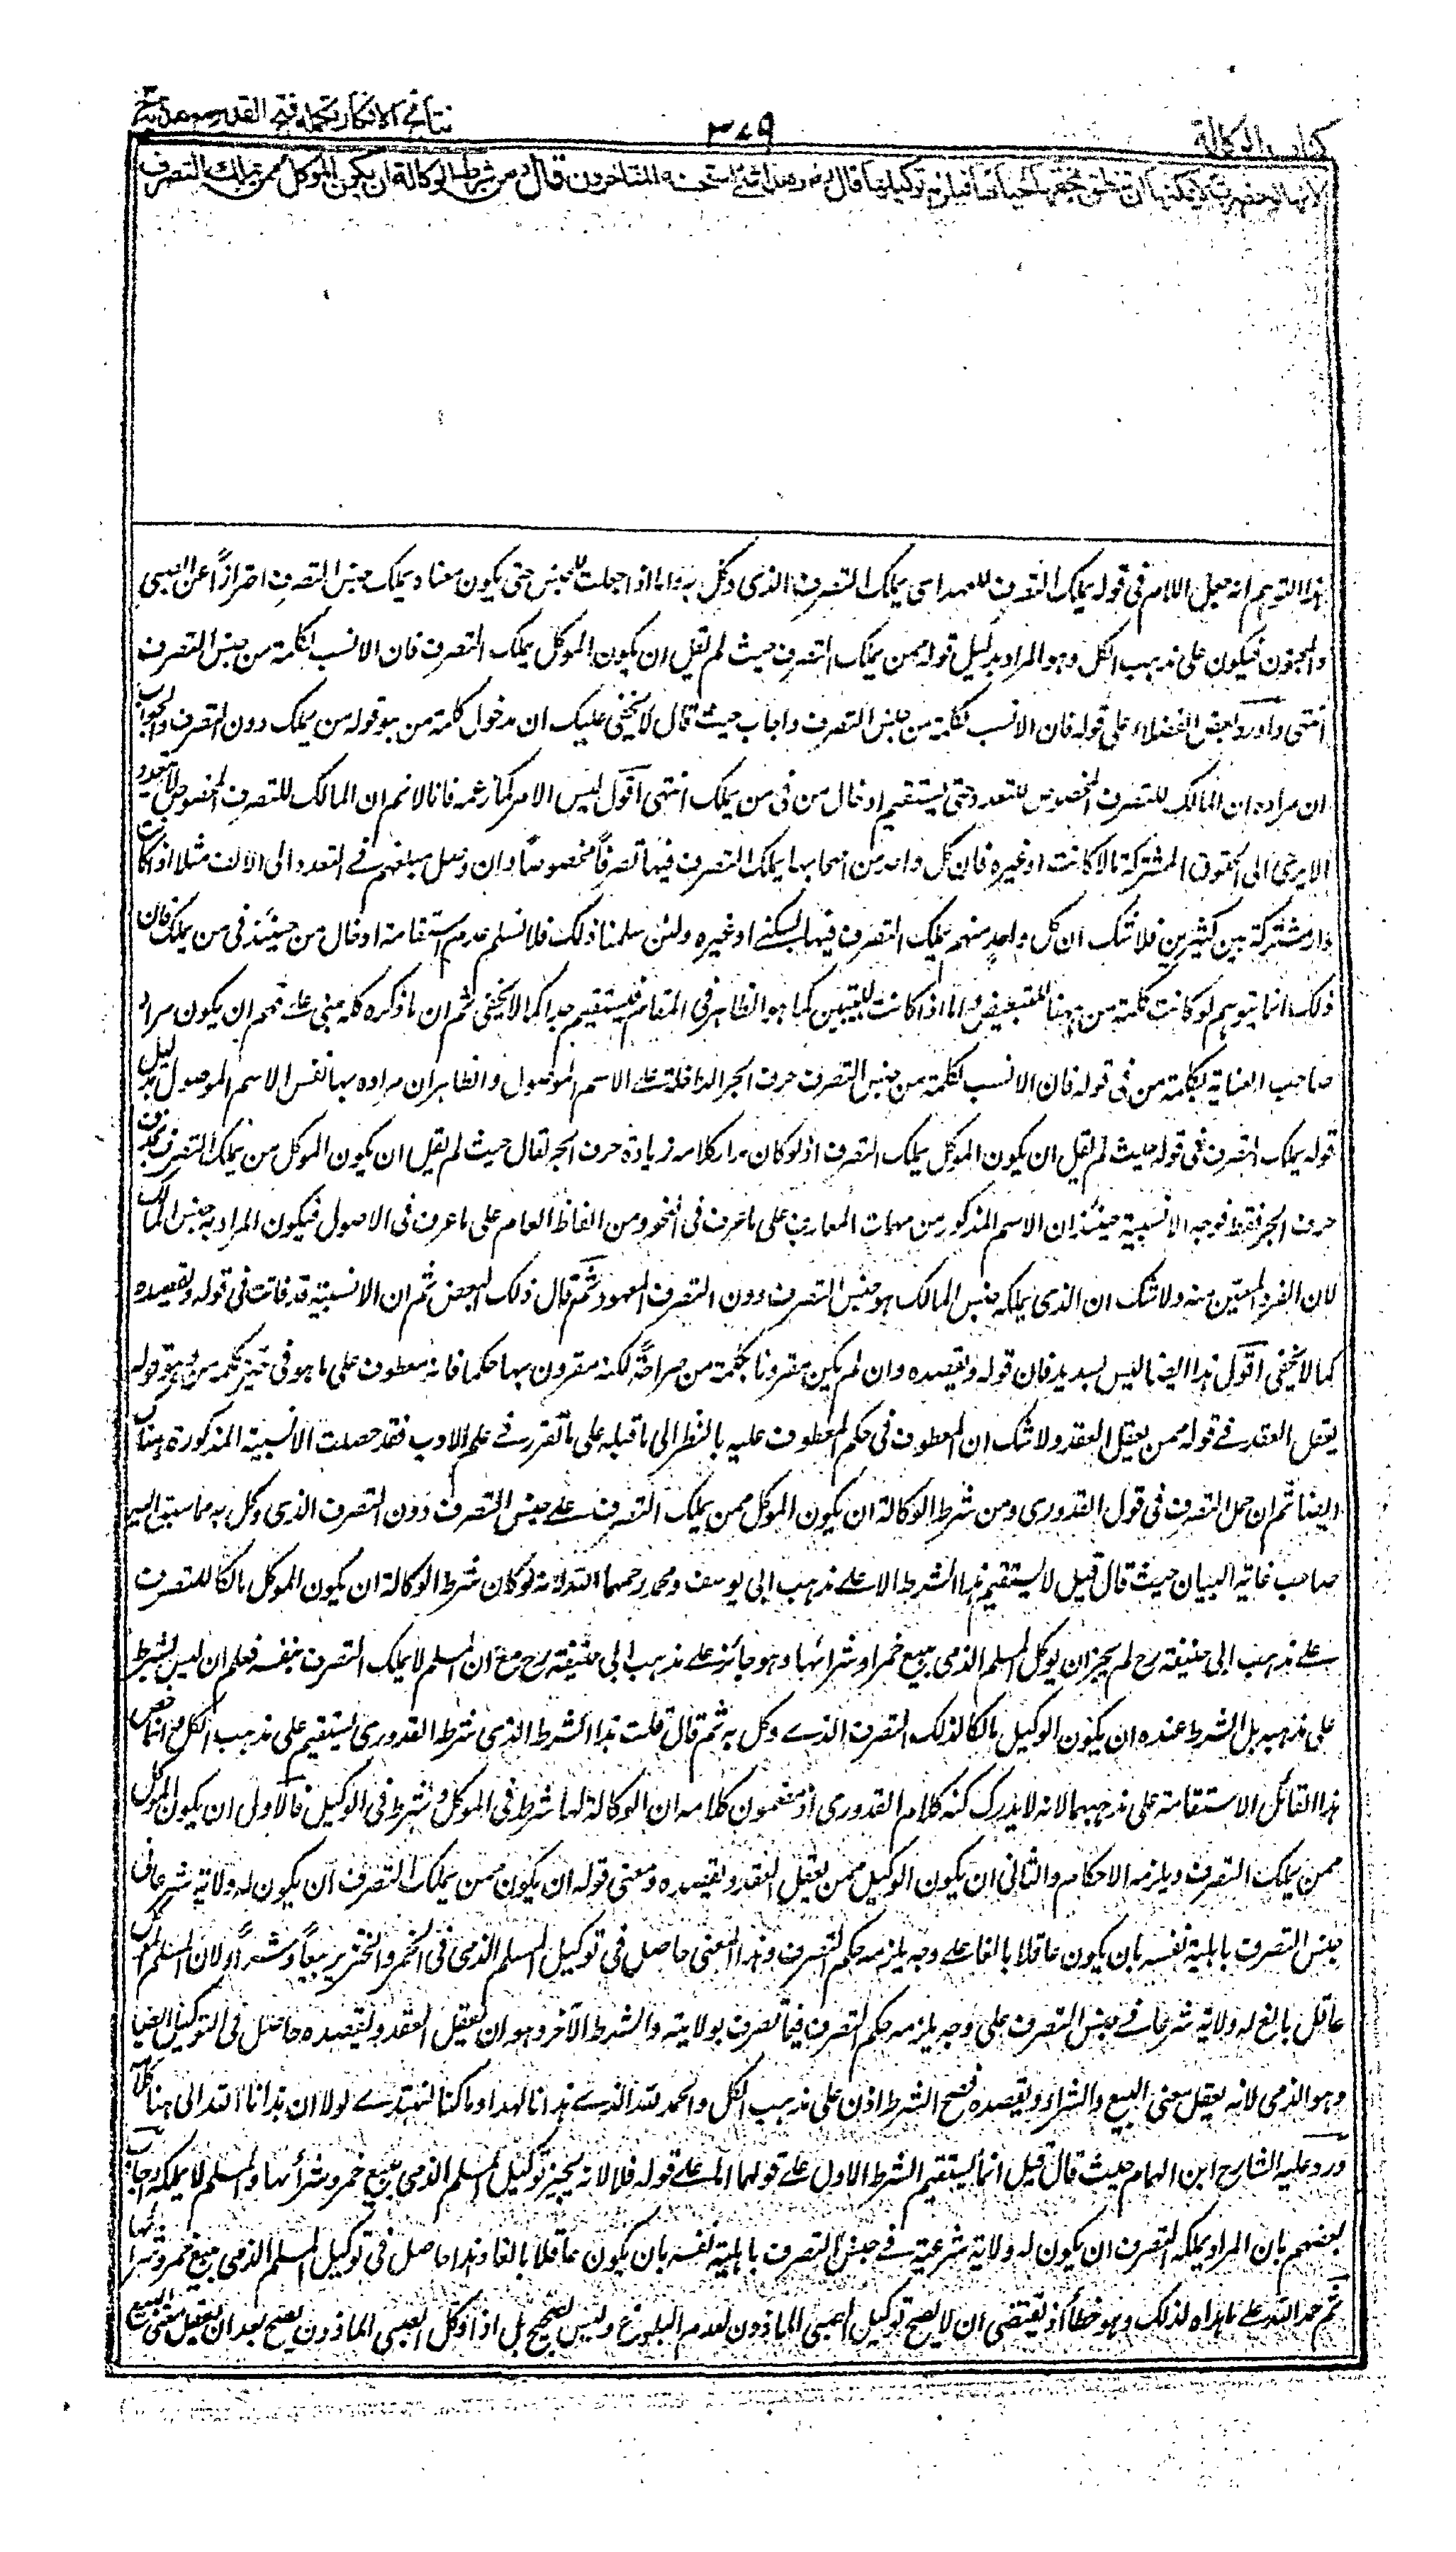 كتاب الوكالة
٣٤٩
نتائج الافكار تكملة فتح القدير مع هداية
لانها لو حضرت لا يمكنها ان تنطق بحقها لحيائها فيلزم توكيلها قال رض وهذا شئ استحسنه المتأخرون قال ومن شرط الوكالة ان يكون الموكل ممن يملك التصرف
هذا التوهم انه جعل اللام فى قوله يملك التصرف للعهد اى يملك التصرف الذى وكل به واما اذا جعلت للجنس حتى يكون معناه يملك جنس التصرف احترازًا عن الصبى
والمجنون فيكون على مذهب الكل وهو المراد بدليل قوله ممن يملك التصرف حيث لم يقل ان يكون الموكل يملك التصرف فان الانسب لكلمة من جنس التصرف
انتهى واورد بعض الفضلاء على قوله فان الانسب لكلمة من جنس التصرف واجاب حيث قال لا يخفى عليك ان مدخول كلمة من هو قوله من يملك دون التصرف والجواب
ان مراده ان المالك للتصرف المخصوص للتعدد حتى يستقيم ادخال من فى من يملك انتهى اقول ليس الامر كما زعمه فانا لا نم ان المالك للتصرف المخصوص لا يتعدد
الا يرى الى الحقوق المشتركة مالا كانت او غيره فان كل واحد من اصحابها يملك التصرف فيها تصرفًا مخصوصًا وان وصل مبلغهم فى التعدد الى الالف مثلا اذا كانت
دار مشتركة بين كثيرين فلا شك ان كل واحدٍ منهم يملك التصرف فيها بالسكنى او غيره ولئن سلمنا ذلك فلا نسلم عدم استقامة ادخال من حينئذ فى من يملك فان
ذلك انما يتوهم لو كانت كلمة من ههنا للتبعيض واما اذا كانت للتبيين كما هو الظاهر فى المقام فيستقيم جدا كما لا يخفى ثم ان ما ذكره كله مبنى على فهم ان يكون مراد
صاحب العناية بكلمة من فى قوله فان الانسب لكلمة من جنس التصرف حرف الجر الداخلة على الاسم الموصول والظاهر ان مراده بها نفس الاسم الموصول بدليل
قوله يملك التصرف فى قوله حيث لم يقل ان يكون الموكل يملك التصرف اذ لو كان مدار كلامه زيادة حرف الجر لقال حيث لم يقل ان يكون الموكل من يملك التصرف بحذف
حرف الجر فقط فوجه الانسبية حينئذ ان الاسم المذكور من مبهمات المعارف على ما عرف فى النحو ومن الفاظ العام على ما عرف فى الاصول فيكون المراد به جنس المالك
لان الفرد المعين منه ولا شك ان الذى يملكه جنس المالك هو جنس التصرف دون التصرف المعهود ثم قال ذلك البعض ثم ان الانسبية قد فاتت فى قوله ويقصده
كما لا يخفى اقول هذا ايضا ليس بسديد فان قوله ويقصده وان لم يكن مقرونا بكلمة من صراحةً لكنه مقرون بها حكما فانه معطوف على ما هو فى حيز كلمة من وهو قوله
يعقل العقد فى قوله ممن يعقل العقد ولا شك ان المعطوف فى حكم المعطوف عليه بالنظر الى ما قبله على ما تقرر فى علم الادب فقد حصلت الانسبية المذكورة هناك
ايضا ثم ان حمل التصرف فى قول القدورى ومن شرط الوكالة ان يكون الموكل ممن يملك التصرف على جنس التصرف دون التصرف الذى وكل به مما سبق اليه
صاحب غاية البيان حيث قال قيل لا يستقيم هذا الشرط الا على مذهب ابى يوسف ومحمد رحمهما الله لانه لو كان شرط الوكالة ان يكون الموكل مالكا للتصرف
على مذهب ابى حنيفة رح لم يجز ان يوكل المسلم الذمى ببيع خمر او شرائها وهو جائز على مذهب ابى حنيفة رح مع ان المسلم لا يملك التصرف بنفسه فعلم ان ليس بشرط
على مذهبه بل الشرط عنده ان يكون الوكيل مالكا لذلك التصرف الذى وكل به ثم قال قلت هذا الشرط الذى شرط القدورى يستقيم على مذهب الكل وانما خص
هذا القائل الاستقامة على مذهبهما لانه لا يدرك كنه كلام القدورى اذ مضمون كلامه ان الوكالة لها شرط فى الموكل وشرط فى الوكيل فالاول ان يكون الموكل
ممن يملك التصرف ويلزمه الاحكام والثانى ان يكون الوكيل ممن يعقل العقد ويقصده ومعنى قوله ان يكون ممن يملك التصرف ان يكون له ولاية شرعا فى
جنس التصرف باهلية نفسه بان يكون عاقلا بالغا على وجه يلزمه حكم التصرف وهذا المعنى حاصل فى توكيل المسلم الذمى فى الخمر والخنزير بيعًا وشراءً لان المسلم الموكل
عاقل بالغ له ولاية شرعا فى جنس التصرف على وجه يلزمه حكم التصرف فيما تصرف بولايته والشرط الآخر وهو ان يعقل العقد ويقصده حاصل فى التوكيل ايضا
وهو الذمى لانه يعقل معنى البيع والشراء ويقصده فصح الشرط اذن على مذهب الكل والحمد لله الذى هدانا لهذا وما كنا لنهتدى لولا ان هدانا الله الى هنا كلامه
ورد عليه الشارح ابن الهمام حيث قال قيل انما يستقيم الشرط الاول على قولهما اما على قوله فلا لانه يجيز توكيل المسلم الذمى ببيع خمر وشرائها والمسلم لا يملكه واجاب
بعضهم بان المراد يملكه التصرف ان يكون له ولاية شرعية فى جنس التصرف باهلية نفسه بان يكون عاقلا بالغا وهذا حاصل فى توكيل المسلم الذمى ببيع خمر وشرائها
ثم حمد الله على ما هداه لذلك وهو خطأ اذ يقتضى ان لا يصح توكيل الصبى الماذون لعدم البلوغ وليس بصحيح بل اذا وكل الصبى الماذون يصح بعد ان يعقل معنى البيع